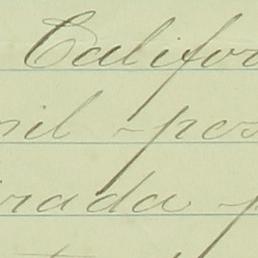 Califor
nil - pos
rada